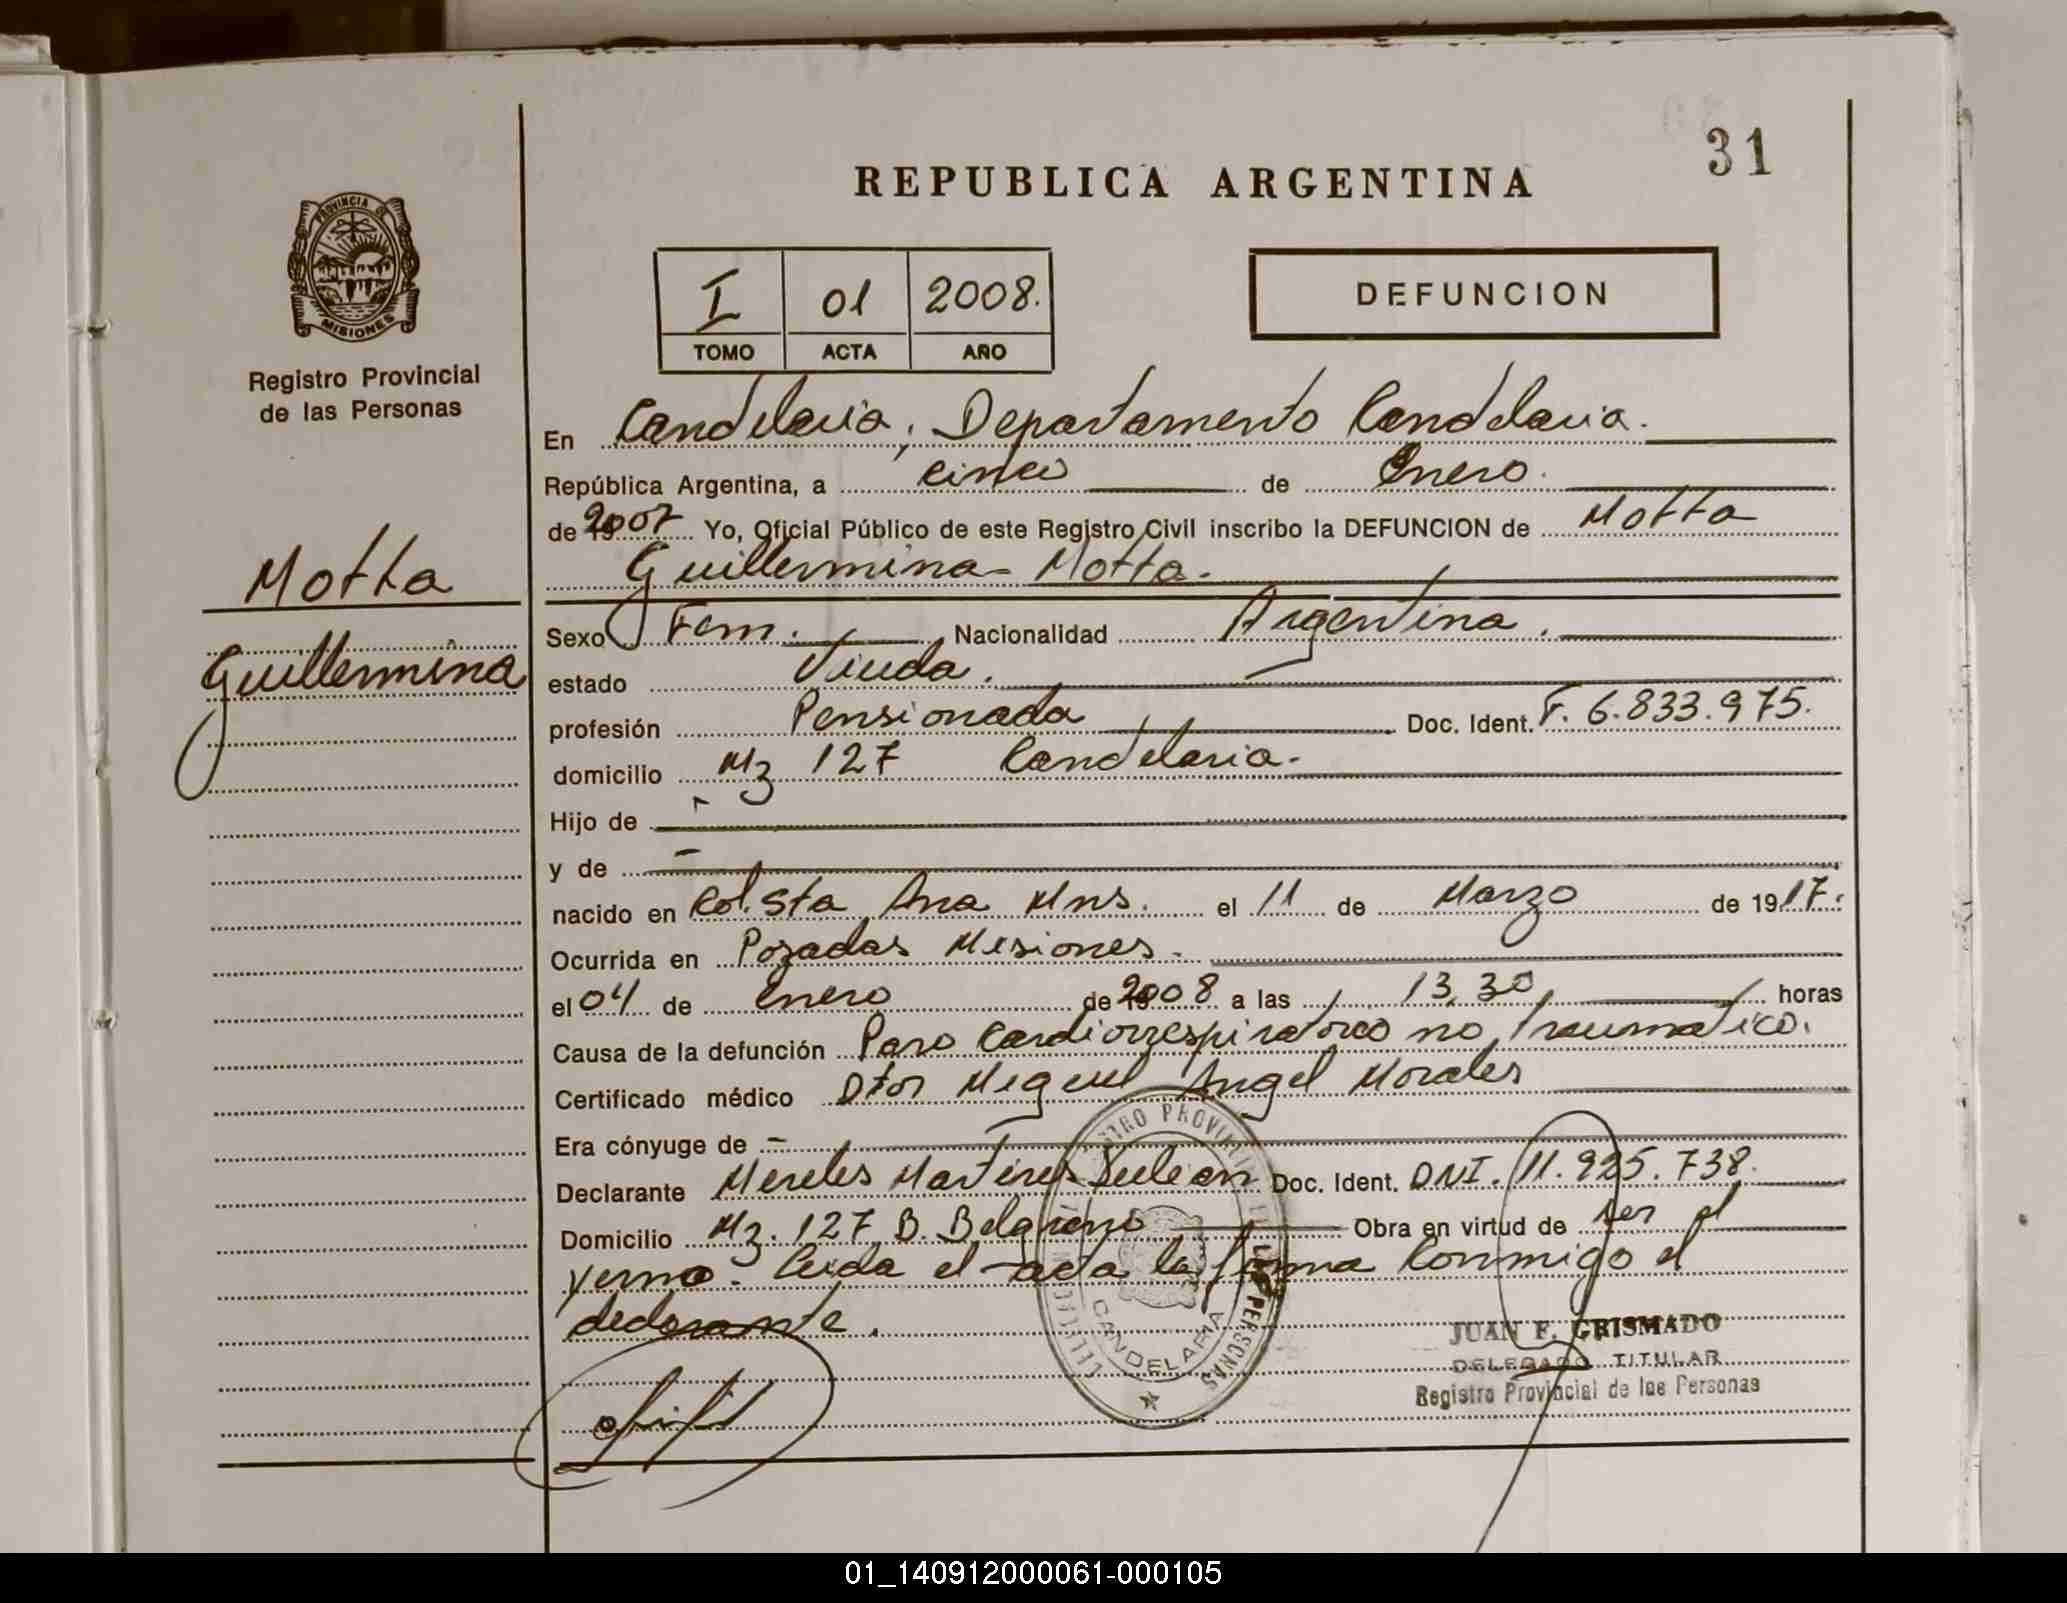 31
REPUBLICA ARGENTINA
PROVINCIA DE
MISIONES
Registro Provincial
de las Personas
I 01 2008.
TOMO ACTA AÑO
DEFUNCION
En Candelaria, Departamento Candelaria.
República Argentina, a cinco de Enero.
de 2007 Yo, Oficial Público de este Registro Civil inscribo la DEFUNCION de Motta
Guillermina Motta.
Motta
Guillermina
Sexo Fem. Nacionalidad Argentina.
estado Viuda.
profesión Pensionada Doc. Ident. F. 6.833.975.
domicilio Mz 127 Candelaria.
Hijo de
y de
nacido en Col. Sta Ana Mns. el 11 de Marzo de 1917.
Ocurrida en Posadas Misiones.
el 04 de Enero de 2008 a las 13,30 horas
Causa de la defunción Paro Cardiorrespiratorio no Traumatico.
Certificado médico Dtor Miguel Angel Morales
Era cónyuge de -
Declarante Mereles Martires Julian Doc. Ident. DNI. 11.925.738.
Domicilio Mz. 127 B. Belgrano Obra en virtud de ser el
yerno. Leida el acta la firma Conmigo el
declarante.
REGISTRO PROVINCIAL DE LAS PERSONAS
CANDELARIA
JUAN F. GRISMADO
DELEGADO TITULAR
Registro Provincial de las Personas
01_140912000061-000105